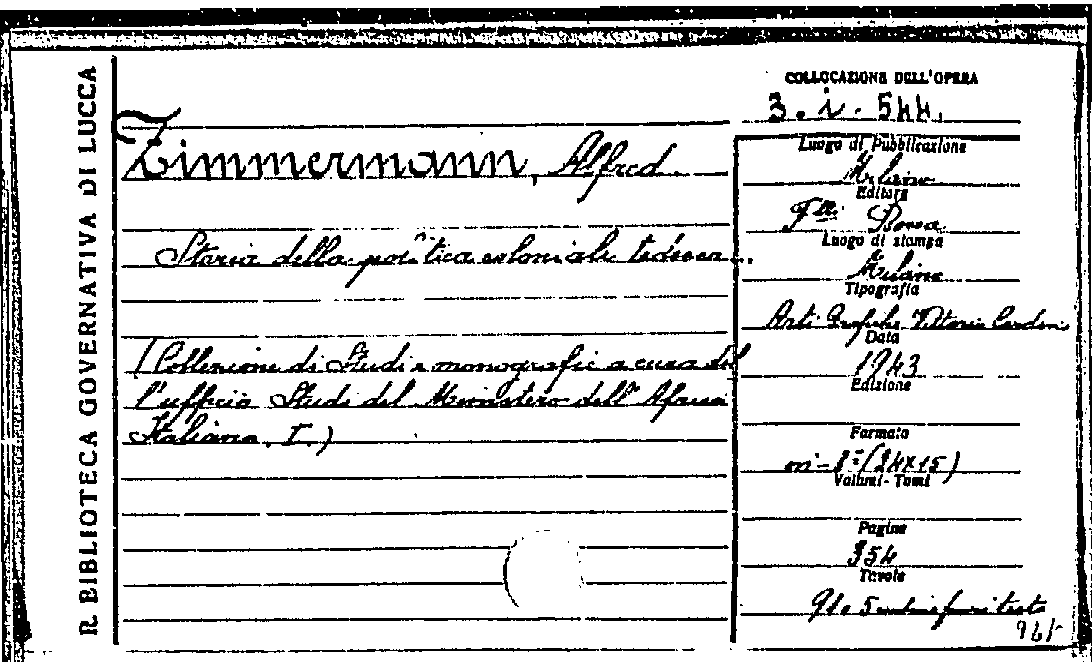 R. BIBLIOTECA GOVERNATIVA DI LUCCA
COLLOCAZIONE DELL'OPERA
3. i. 544.
Zimmermann, Alfred.
Storia della politica coloniale tedesca.
(Collezione di Studi e monografie a cura del
l'ufficio Studi del Ministero dell'Africa
Italiana. I.)
Luogo di Pubblicazione
Milano
Editore
F.lli Bocca
Luogo di stampa
Milano
Tipografia
Arti Grafiche Vittorio Cardin
Data
1943
Edizione
Formato
in-8° (24x15)
Volumi - Tomi
Pagine
354
Tavole
5 fuori testo